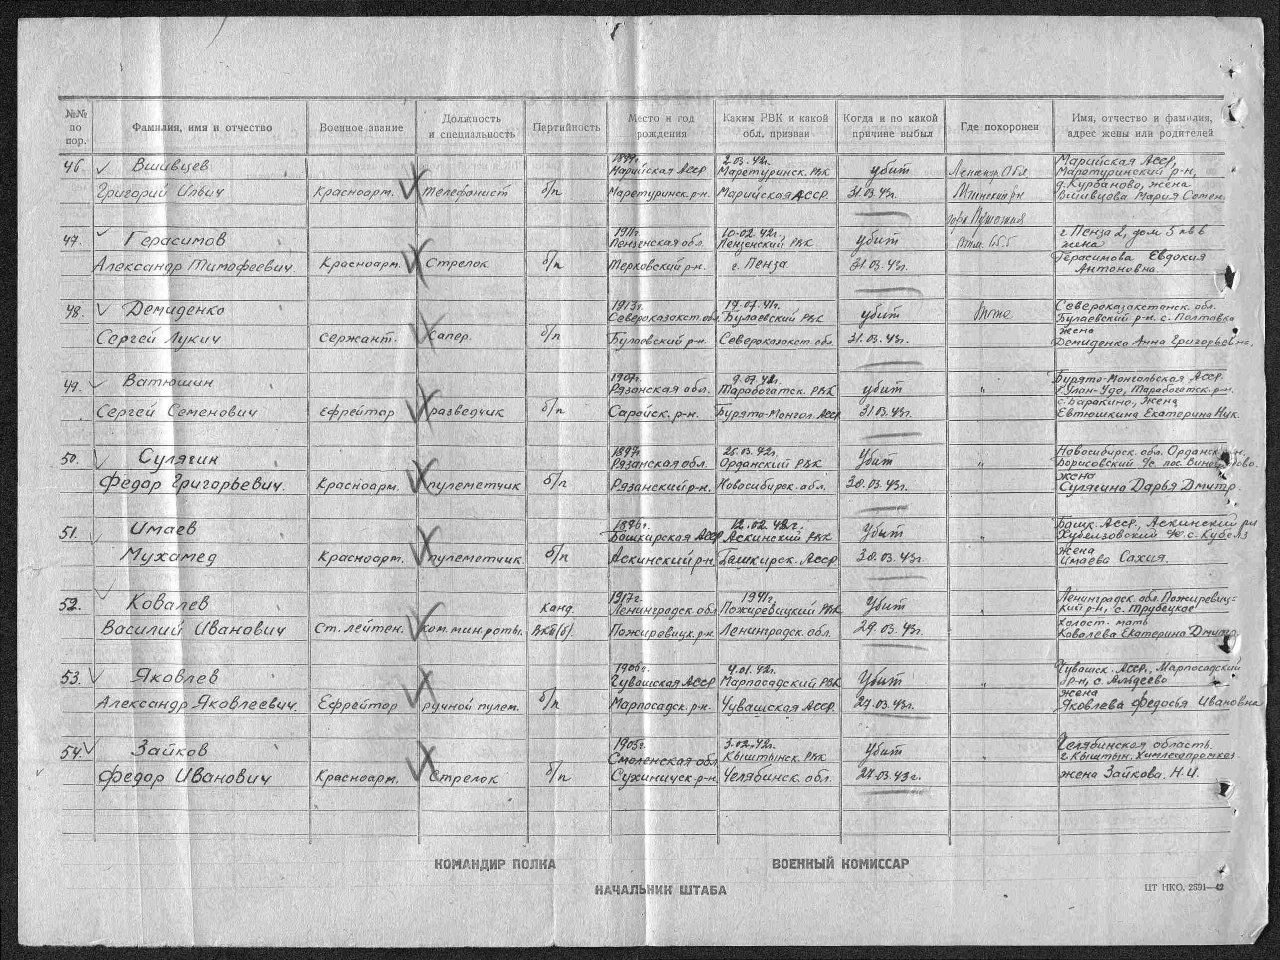 №№ по пор.
Фамилия, имя и отчество
Военное звание
Должность и специальность
Партийность
Место и год рождения
Каким РВК и какой обл. призван
Когда и по какой причине выбыл
Где похоронен
Имя, отчество и фамилия, адрес жены или родителей
46. Вшивцев 1897г. 2.03.42г. Марийская АССР,
Марийская АССР Маретуринск. РВК убит Обл. Маретуринский р-н,
Григорий Красноарм. Телефонист б/п Маретуринск.р-н. Марийская АССР 31.03.43г. Мгинский рн д. Курбаново, жена
Вшивцева Мария Семен.
47. Герасимов 1911г. 10.02.42г. г. Пенза 2, дом 5 кв 6
Пензенская обл. Пензенский РВК убит жена
Александр Тимофеевич Красноарм. Стрелок б/п Терновский р-н. г. Пенза 31.03.43г. Герасимова Евдокия
Антоновна.
48. Демиденко 1913г. 19.07.41г. Североказахстанск. обл.
Североказахст.обл. Булаевский РВК убит Тоже Булаевский р-н. с. Полтавка
Сергей Лукич Сержант. Сапер. б/п Булаевский р-н. Североказахст. обл. 31.03.43г. жена
Демиденко Анна Григорьевна.
49. Ватюшин 1907г. 9.07.42г. Бурято-Монгольская АССР.
Рязанская обл. Тарабогатск. РВК убит " г. Улан-Удэ, Тарабогатск.р-н.
Сергей Семенович Ефрейтор разведчик б/п Сарайск. р-н. Бурято-Монгол. АССР 31.03.43г. с. Баракино, жена
Евтюшкина Екатерина Ник.
50. Сулягин 1897г. 25.03.42г. Новосибирск. обл. Орданск
Рязанская обл. Орданский РВК Убит " Борисовский
Федор Григорьевич. Красноарм. пулеметчик б/п Рязанский р-н. Новосибирск. обл. 30.03.43г. жена
Сулягина Дарья Дмитр.
51. Имаев 1896г. 12.02.42г. Башк. АССР, Аскинский рн
Башкирская АССР Аскинский РВК Убит "
Мухамед Красноарм. пулеметчик б/п Аскинский р-н. Башкирск. АССР 30.03.43г. жена
Имаева Сахия.
52. Ковалев 1917г. 1941г. Ленинградск. обл. Пожиревиц-
Канд. Ленинградск.обл. Пожиревицкий РВК Убит " кий р-н, с. Трубецкое
Василий Иванович Ст. лейтен. ком. мин. роты. ВКП(б). Пожиревицк. р-н. Ленинградск. обл. 29.03.43г. холост. мать
Ковалева Екатерина Дмитр
53. Яковлев 1906г. 4.01.42г. Чувашск. АССР, Марпосадский
Чувашская АССР Марпосадский РВК Убит " р-н, с.
Александр Яковлеевич. Ефрейтор ручной пулем. б/п Марпосадск. р-н. Чувашская АССР. 27.03.43г. жена
Яковлева Федосья Ивановна
54. Зайков 1905г. 3.02.42г. Челябинская область.
Смоленская обл. Кыштынск. РВК Убит " г. Кыштын. Химлесопромхоз
Федор Иванович Красноарм. Стрелок б/п Сухиничск р-н. Челябинск. обл. 27.03.43г. жена Зайкова. Н.И.
КОМАНДИР ПОЛКА
ВОЕННЫЙ КОМИССАР
НАЧАЛЬНИК ШТАБА
ЦТ НКО. 2591—42